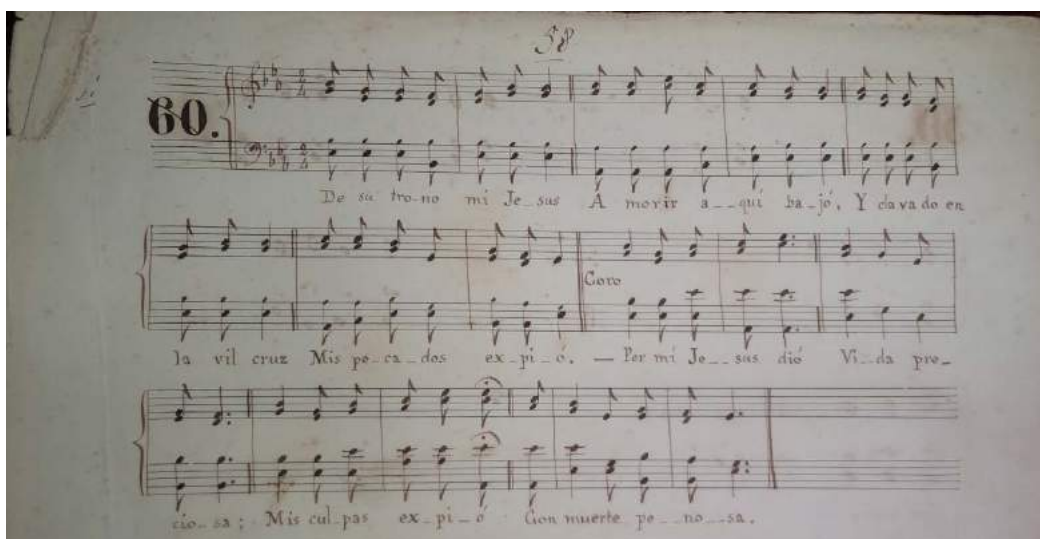 58
60.
De su tro-no mi Je--sus Á morir a--quí ba-jó, Y clavado en
Coro
la vil cruz Mis pe-ca--dos ex-pi--ó. — Por mi Je--sus dió Vi--da pre-
cio--sa; Mis cul-pas ex-pi-ó Con muerte pe--no--sa.